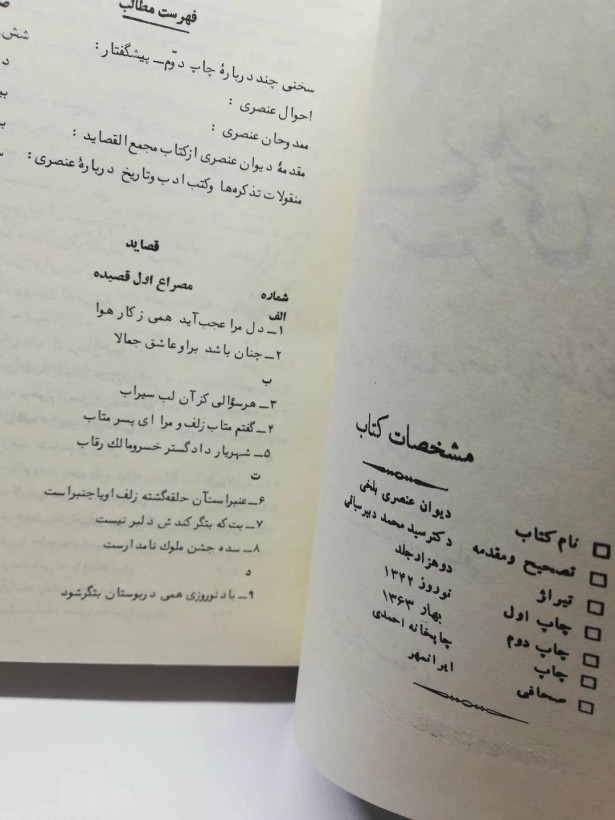 مشخصات کتاب
نام کتاب دیوان عنصری بلخی
تصحیح ومقدمه دکترسید محمد دبیرسیاقی
تیراژ دوهزارجلد
چاپ اول نوروز ۱۳۴۲
چاپ دوم بهار ۱۳۶۳
چاپ چاپخانه احمدی
صحافی ایرانمهر
فهرست مطالب
سخنی چند دربارهٔ چاپ دوّم ــ پیشگفتار: شش
احوال عنصری :
ممدوحان عنصری :
مقدمهٔ دیوان عنصری ازکتاب مجمع القصاید :
منقولات تذکره‌ها وکتب ادب وتاریخ دربارهٔ عنصری:
قصاید
شماره مصراع اول قصیده
الف
۱ــ دل مرا عجب آید همی ز کار هوا
۲ــ چنان باشد براو عاشق جمالا
ب
۳ــ هرسؤالی کز آن لب سیراب
۴ــ گفتم متاب زلف و مرا ای پسر متاب
۵ــ شهریار دادگستر خسرومالك رقاب
ت
۶ــ عنبراست آن حلقه‌گشته زلف اویاچنبراست
۷ــ بت که بتگر کندش دلبر نیست
۸ــ سده جشن ملوك نامدارست
د
۹ــ باد نوروزی همی دربوستان بتگرشود